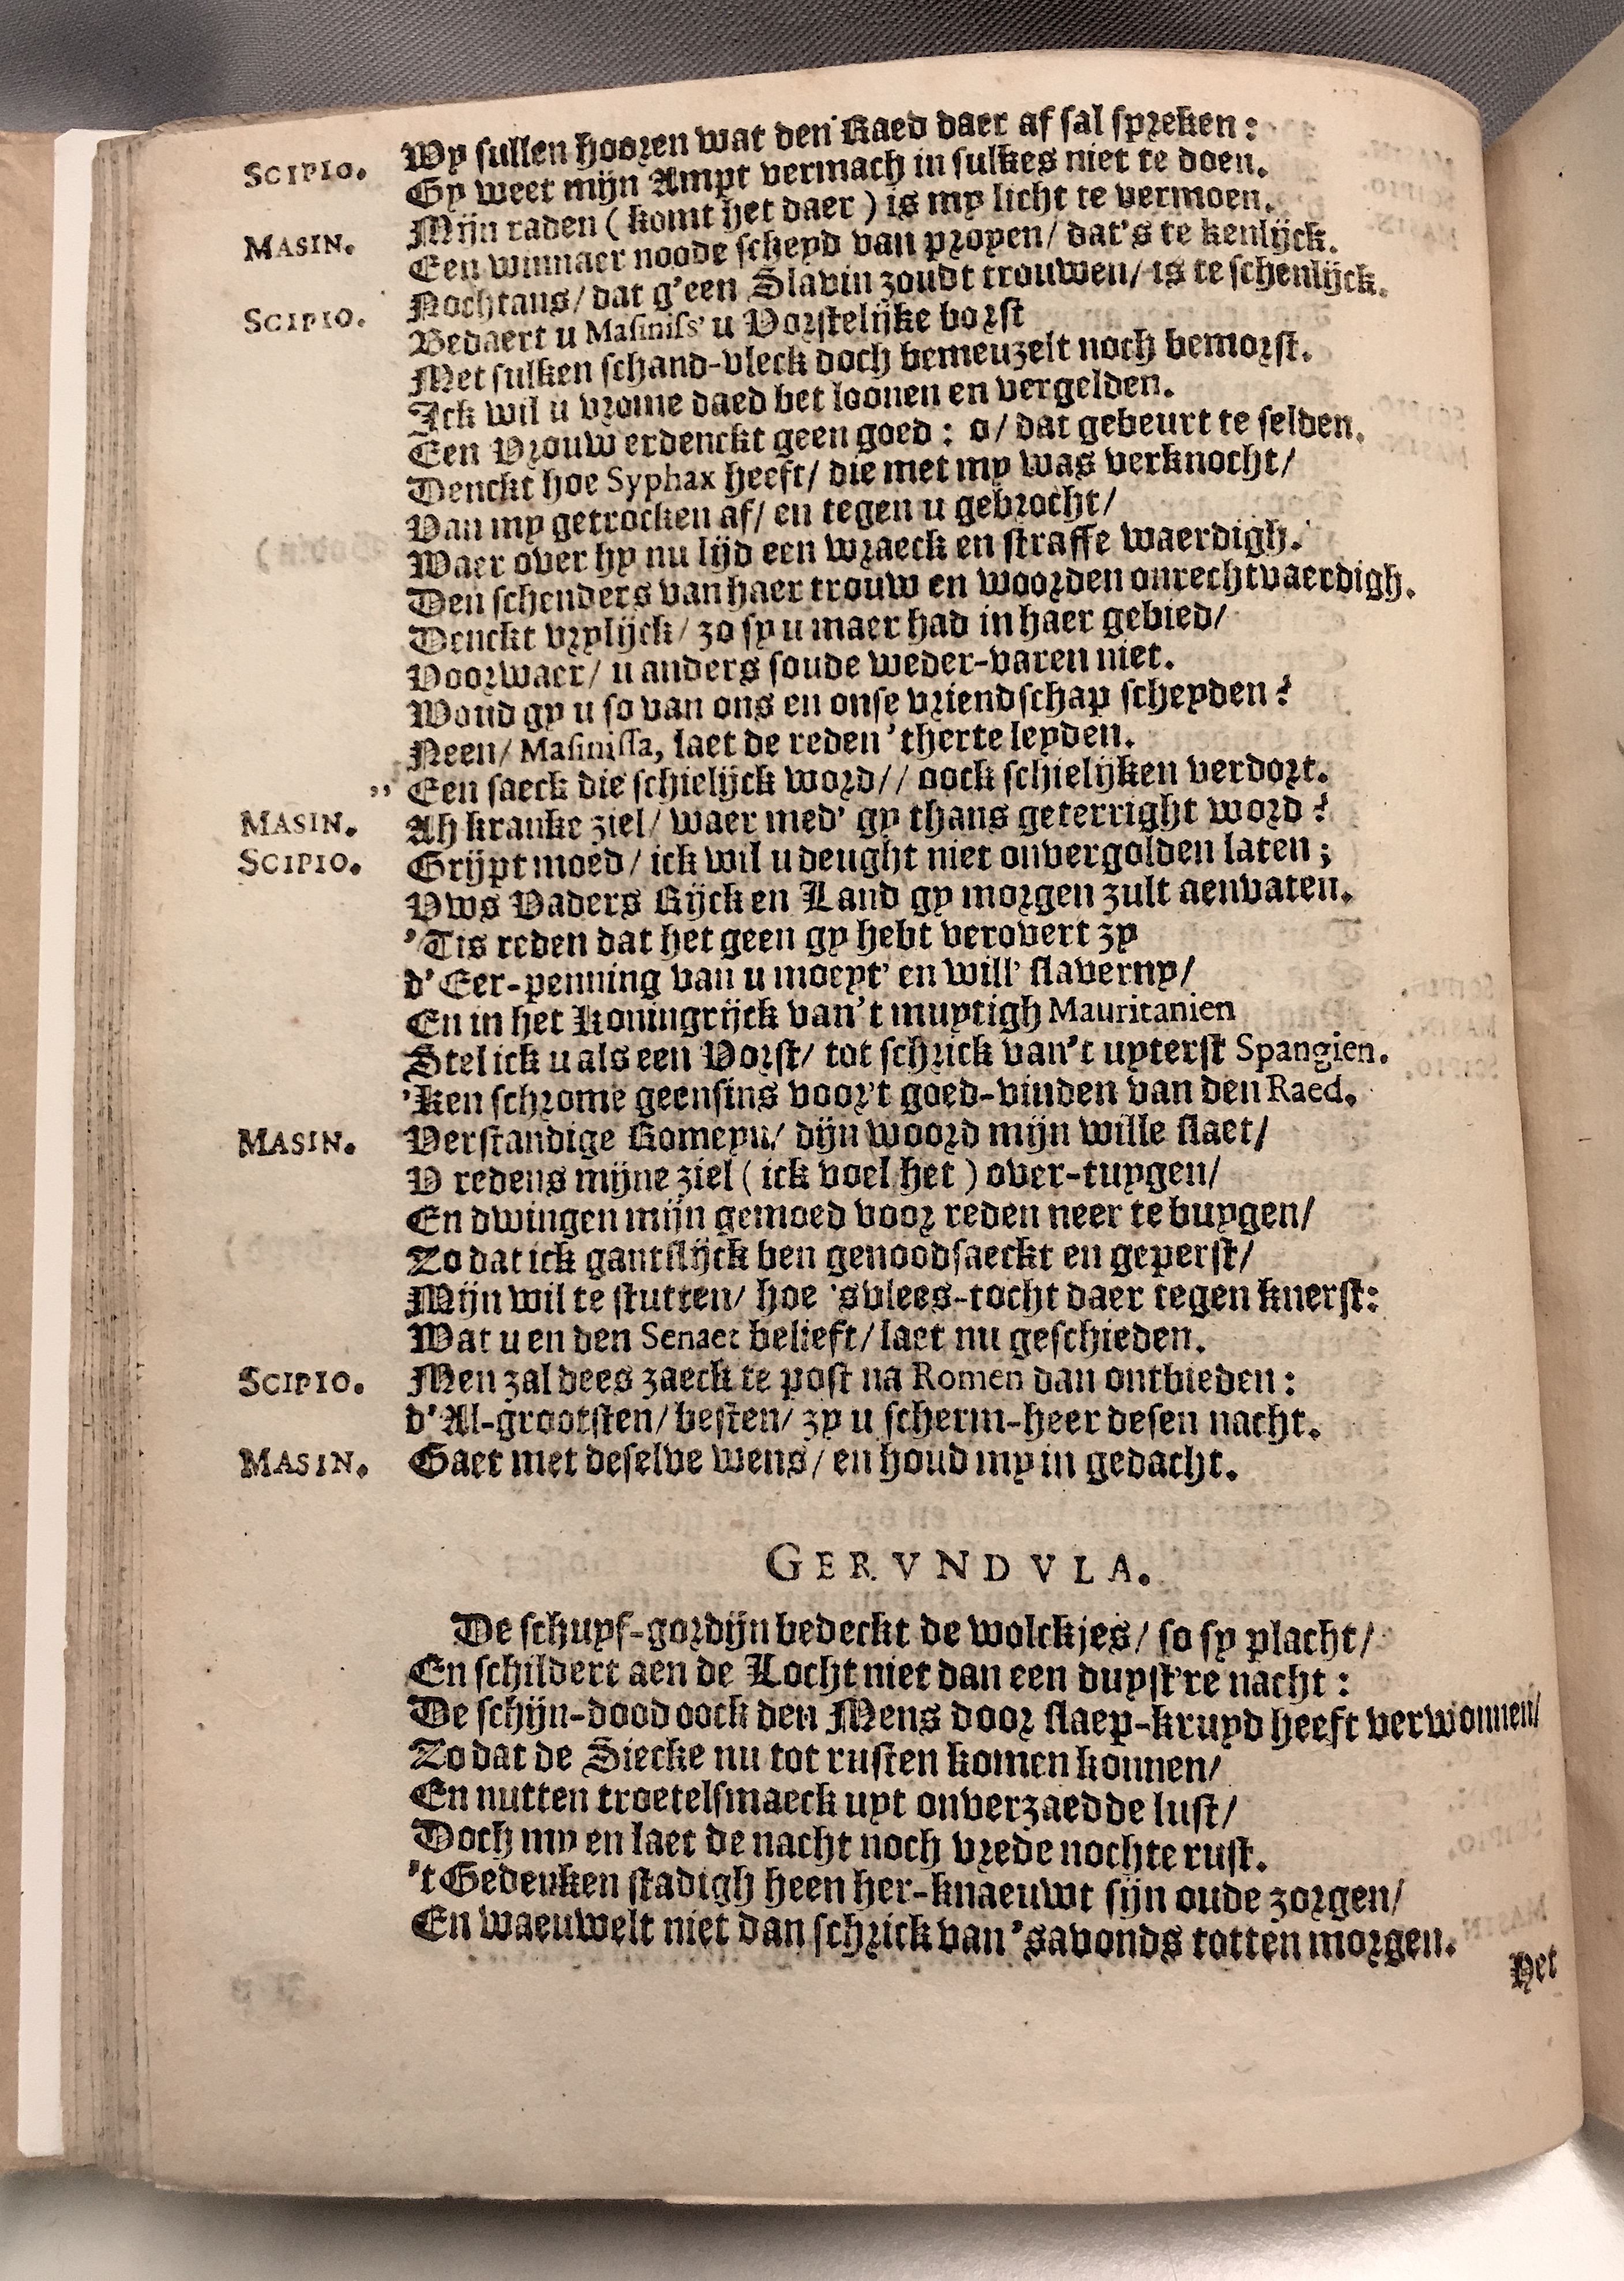 Wy sullen hooren wat den Raed daer af sal spreken:
SCIPIO. Gy weet mijn Ampt vermach in sulkes niet te doen.
Mijn raden ( komt het daer ) is my licht te vermoen.
MASIN. Een winnaer noode scheyd van proyen/ dat's te kenlijck.
Nochtans/ dat g'een Slavin zoudt trouwen/ is te schenlijck.
SCIPIO. Bedaert u Masiniss' u Vorstelijke borst
Met sulken schand-vleck doch bemeuzelt noch bemorst.
Ick wil u vrome daed bet loonen en vergelden.
Een Vrouw erdenckt geen goed: o/ dat gebeurt te selden.
Denckt hoe Syphax heeft/ die met my was verknocht/
Van my getrocken af/ en tegen u gebrocht/
Waer over hy nu lijd een wraeck en straffe waerdigh.
Den schenders van haer trouw en woorden onrechtvaerdigh.
Denckt vrylijck/ zo sy u maer had in haer gebied/
Voorwaer/ u anders soude weder-varen niet.
Woud gy u so van ons en onse vriendschap scheyden?
Neen/ Masinissa, laet de reden 'therte leyden.
,, Een saeck die schielijck word// oock schielijken verdort.
MASIN. Ah kranke ziel/ waer med' gy thans geterright word?
SCIPIO. Grijpt moed/ ick wil u deught niet onvergolden laten;
Vws Vaders Rijck en Land gy morgen zult aenvaten.
'Tis reden dat het geen gy hebt verovert zy
d'Eer-penning van u moeyt' en will' slaverny/
En in het Koningrijck van't muytigh Mauritanien
Stel ick u als een Vorst/ tot schrick van't uyterst Spangien.
'Ken schrome geensins voor't goed-vinden van den Raed.
MASIN. Verstandige Romeyn/ dijn woord mijn wille slaet/
V redens mijne ziel ( ick voel het ) over-tuygen/
En dwingen mijn gemoed voor reden neer te buygen/
Zo dat ick gantslijck ben genoodsaeckt en geperst/
Mijn wil te stutten/ hoe 'svlees-tocht daer tegen knerst:
Wat u en den Senaet belieft/ laet nu geschieden.
SCIPIO. Men zal dees zaeck te post na Romen dan ontbieden:
d'Al-grootsten/ besten/ zy u scherm-heer desen nacht.
MASIN. Gaet met deselve wens/ en houd my in gedacht.
GERVNDVLA.
De schuyf-gordijn bedeckt de wolckjes/ so sy placht/
En schildert aen de Locht niet dan een duyst're nacht:
De schijn-dood oock den Mens door slaep-kruyd heeft verwonnen/
Zo dat de Siecke nu tot rusten komen konnen/
En nutten troetelsmaeck uyt onverzaedde lust/
Doch my en laet de nacht noch vrede nochte rust.
't Gedenken stadigh heen her-knaeuwt sijn oude zorgen/
En waeuwelt niet dan schrick van 'savonds totten morgen.
Het